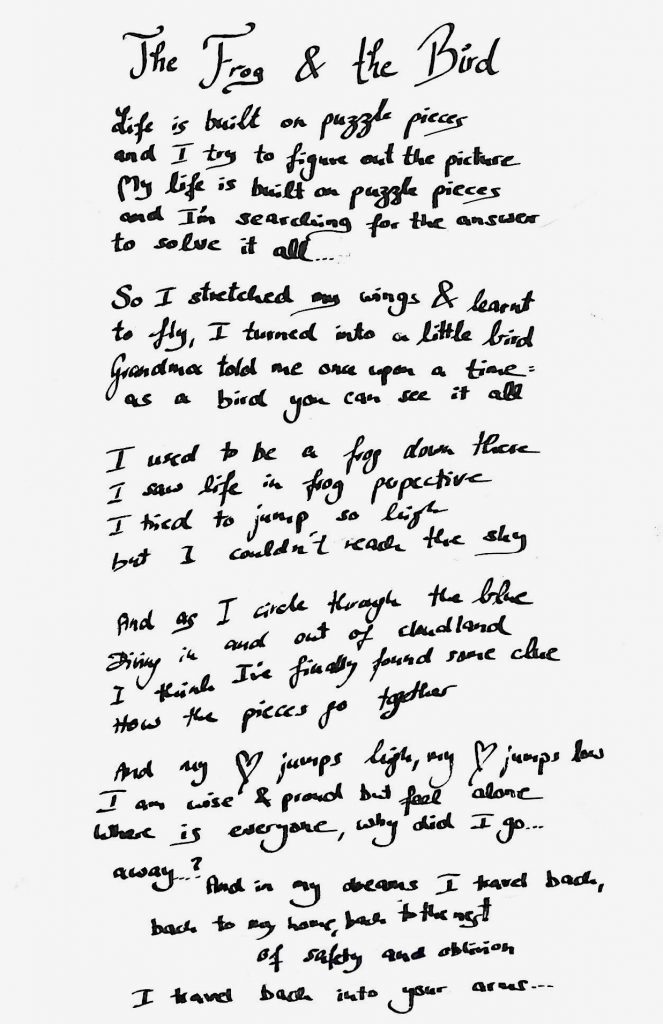 The Frog & the Bird
Life is built on puzzle pieces
and I try to figure out the picture
My life is built on puzzle pieces
and I'm searching for the answer
to solve it all....
So I stretched my wings & learnt
to fly, I turned into a little bird
Grandma told me once upon a time:
as a bird you can see it all
I used to be a frog down there
I saw life in frog perpective
I tried to jump so high
but I couldn't reach the sky
And as I circle through the blue
Diving in and out of cloudland
I think I've finally found some clue
How the pieces go together
And my ♡ jumps high, my ♡ jumps low
I am wise & proud but feel alone
Where is everyone, why did I go...
away...?
And in my dreams I travel back,
back to my home, back to the nest
of safety and oblivion
I travel back into your arms...